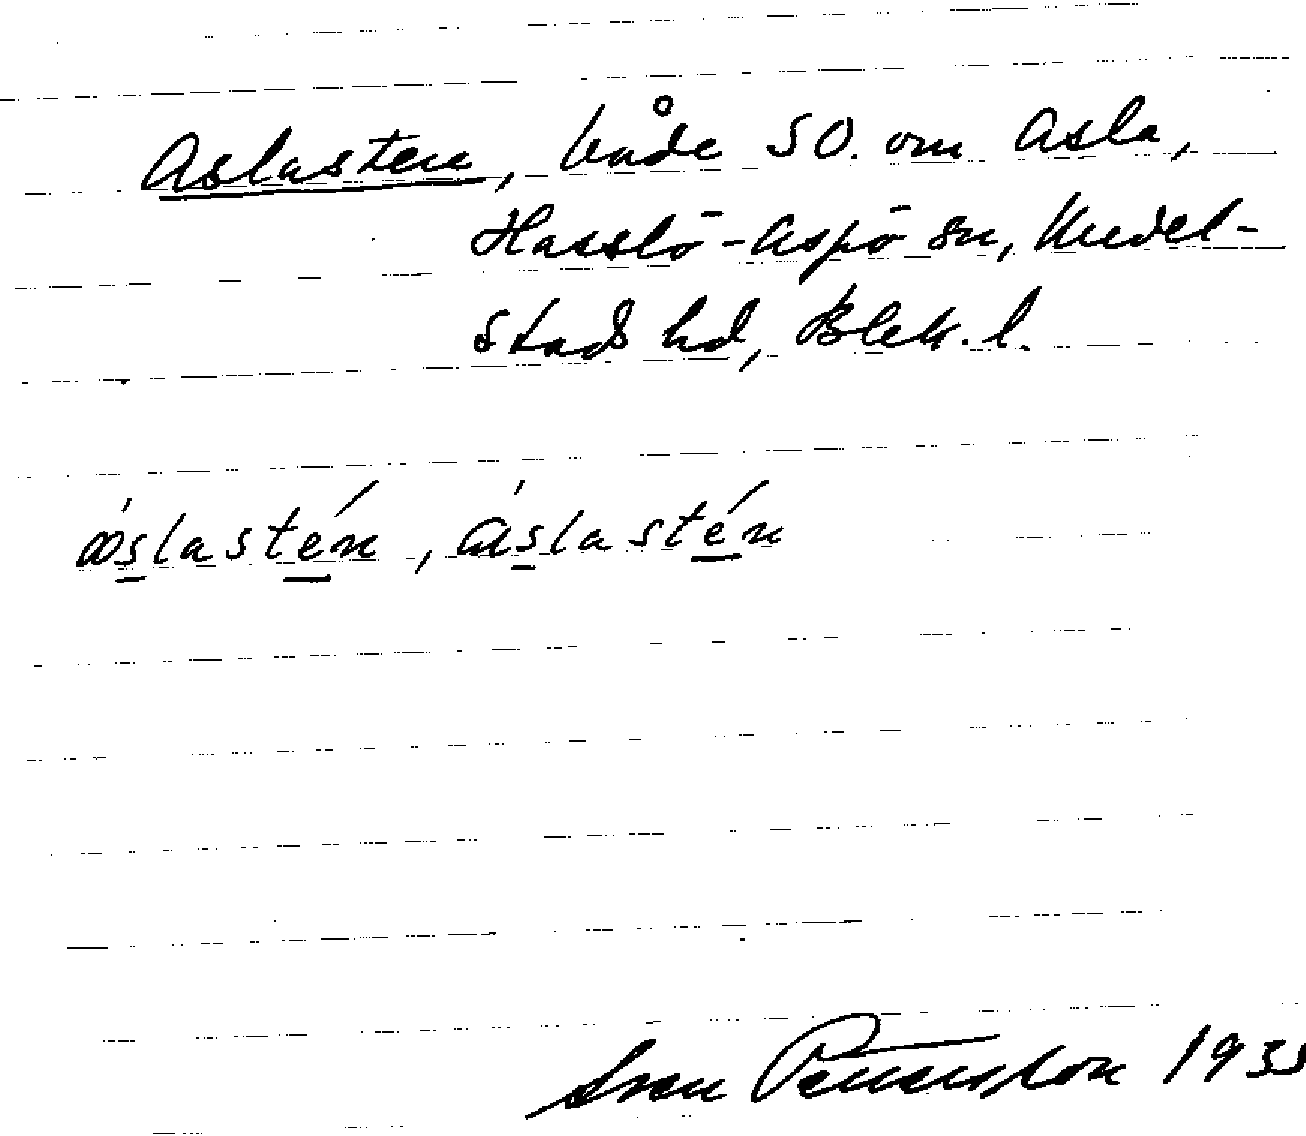 Aslasten, både SO. om Asla,
Hasslö-Aspö sn, Medel-
stads hd, Blek. l.
áslastén, áslastén
Sven Petersson 193